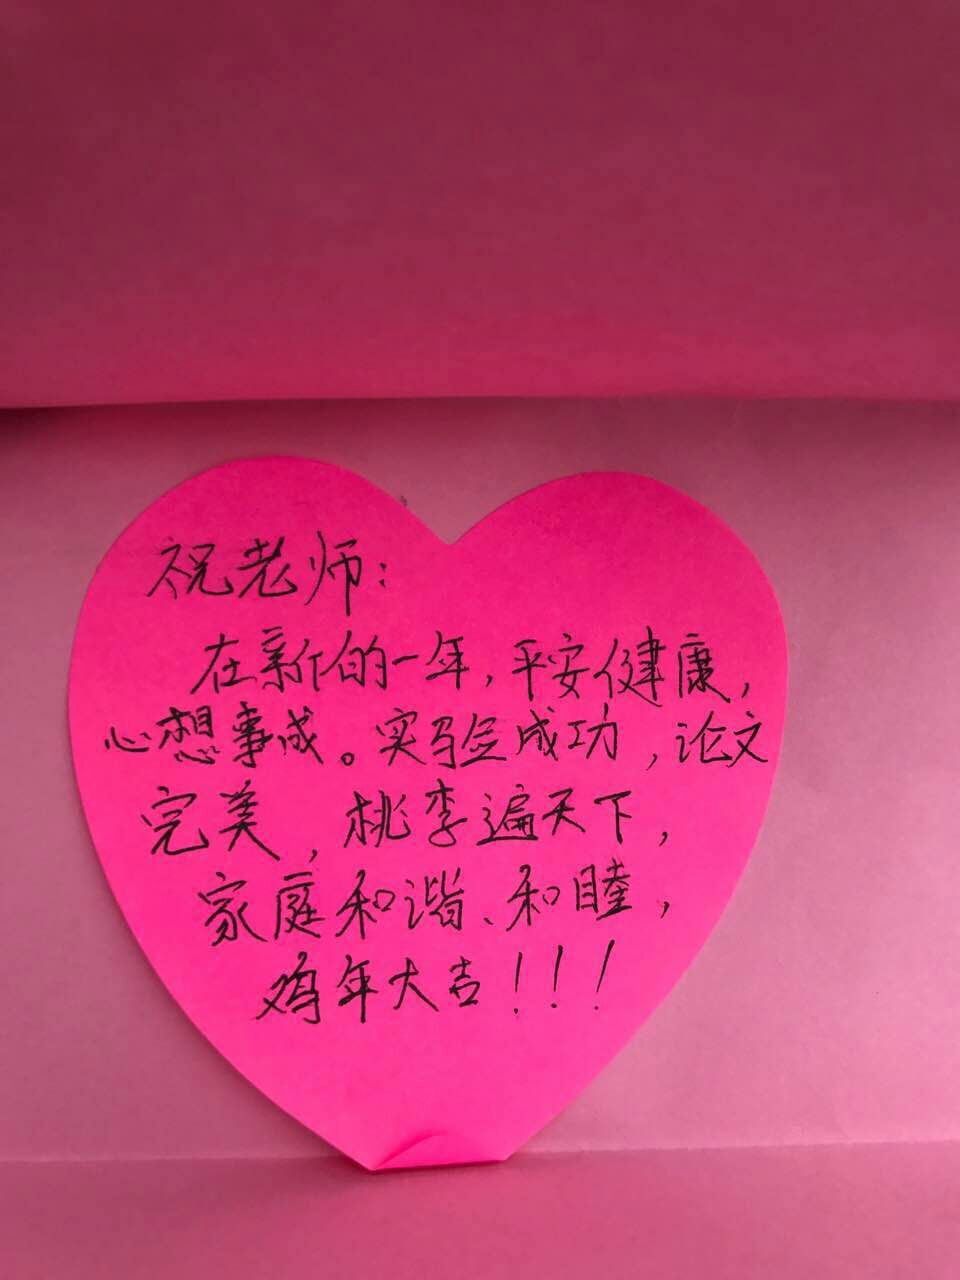 祝老师：
在新的一年，平安健康，
心想事成。实验成功，论文
完美，桃李遍天下，
家庭和谐、和睦，
鸡年大吉！！！